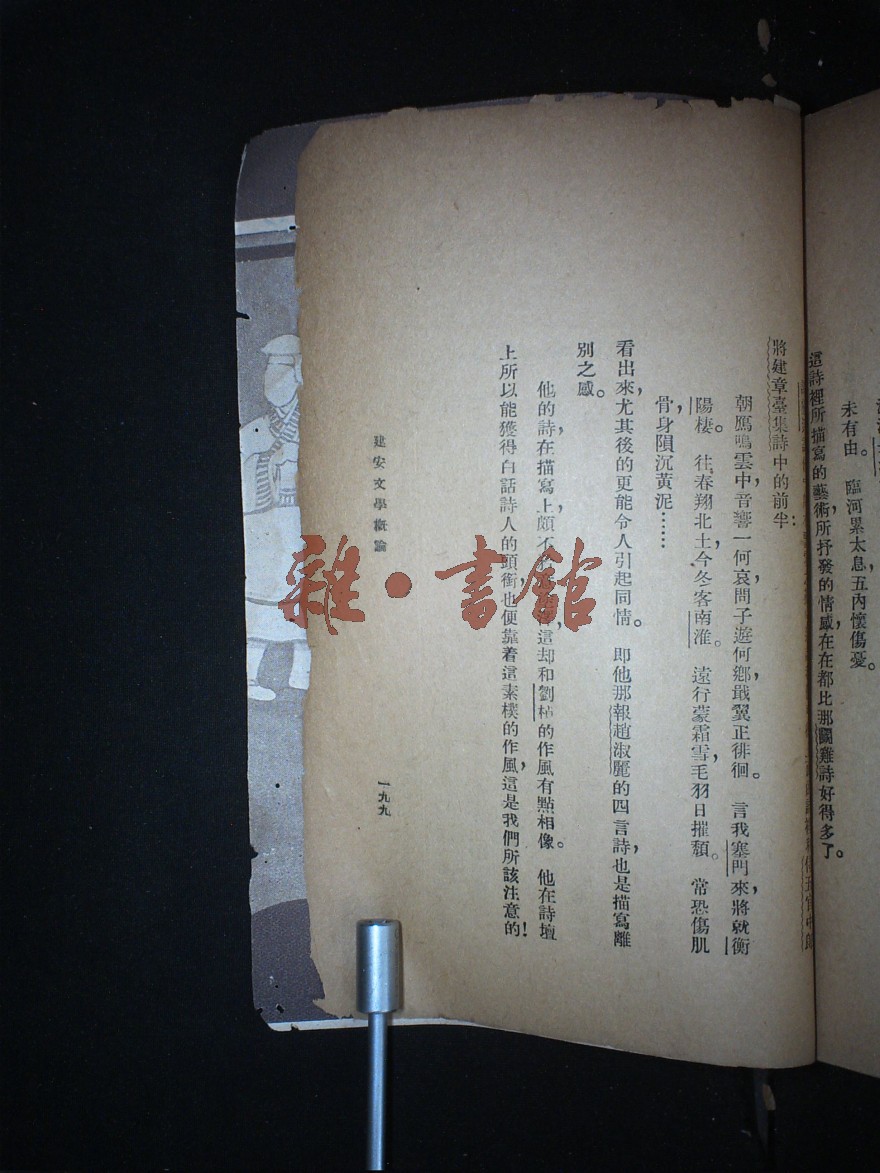 未有由。　臨河累太息，五內懷傷憂。
這詩裡所描寫的藝術，所抒發的情感，在在都比那鬭雞詩好得多了。
將建章臺集詩中的前半：
朝鴈鳴雲中，音響一何哀，問子遊何鄉，戢翼正徘徊。　言我塞門來，將就衡
陽棲。　往春翔北土，今冬客南淮。　遠行蒙霜雪，毛羽日摧頹。　常恐傷肌
骨，身隕沉黃泥……
看出來，尤其後的更能令人引起同情。　即他那報趙淑麗的四言詩，也是描寫離
別之感。
他的詩，在描寫上，頗不，這却和劉楨的作風有點相像。　他在詩壇
上所以能獲得白話詩人的頭銜，也便靠着這素樸的作風，這是我們所該注意的！
建安文學概論
一九九
雜·書館